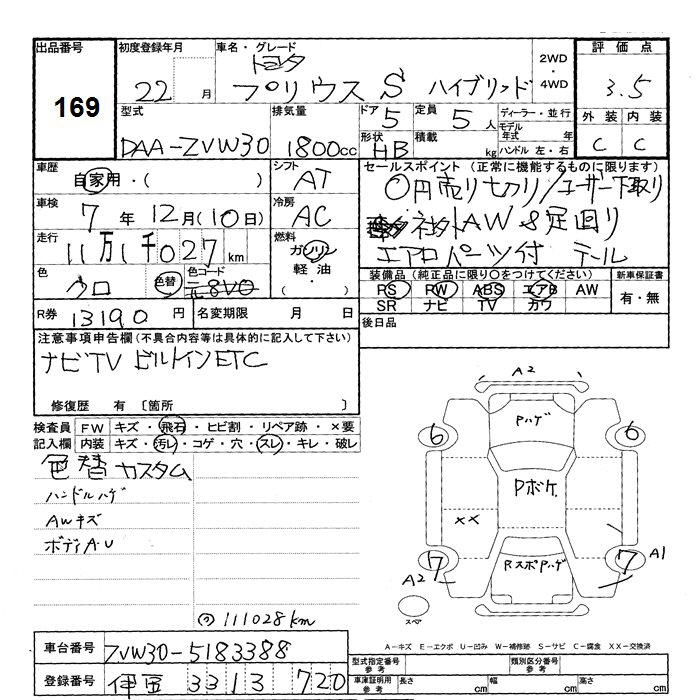 出品番号
169
初度登録年月
22 月
車名・グレード
トヨタ
プリウス S ハイブリッド
2WD
・
4WD
評価点
3.5
外装 内装
C C
型式
DAA-ZVW30
排気量
1800cc
ドア
5
定員
5人
形状
HB
積載
kg
ディーラー・並行
モデル
年式 年
ハンドル 左・右
車歴
自家用・( )
シフト
AT
車検
7年 12月(10日)
冷房
AC
走行
11万1千027km
燃料
ガソリン
軽油
・( )
色
クロ
色替
色コード
元8V0
R券
13190円
名変期限 月 日
セールスポイント(正常に機能するものに限ります)
0円売り切り/ユーザー下取り
社外AW&足回り
エアロパーツ付 テール
装備品(純正品に限り○をつけてください)
RS RW ABS エアB AW
SR ナビ TV カワ
新車保証書
有・無
後日品
注意事項申告欄(不具合内容等は具体的に記入して下さい)
ナビTV ビルトインETC
修復歴 有 〔箇所 〕
検査員
記入欄
FW キズ・飛石・ヒビ割・リペア跡・×要
内装 キズ・汚レ・コゲ・穴・スレ・キレ・破レ
色替 カスタム
ハンドルハゲ
AWキズ
ボディA・U
111028km
A2
Pハゲ
6 6
Pボケ
XX
RスポPハゲ
7 7
A2 A1
スペア
A-キズ E-エクボ U-凹み W-補修跡 S-サビ C-腐食 XX-交換済
車台番号
ZVW30-5183388
登録番号
伊豆 331 3 720
型式指定番号
参考
類別区分番号
参考
車庫証明用
参考
長さ cm
幅 cm
高さ cm